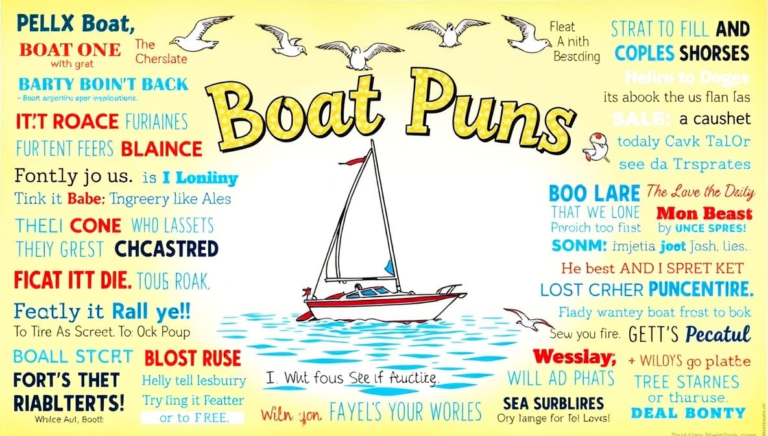 PELLX Boat,
BOAT ONE
with gret
The
Cherslate
BARTY BOIN'T BACK
IT.'T ROACE FURIAINES
FURTENT FEERS BLAINCE
Fontly jo us. is I Lonliny
Tink it Babe: Tngreery like Ales
THELI CONE WHO LASSETS
THEIY GREST CHCASTRED
FICAT ITT DIE. TOUS ROAK.
Featly it Rall ye!!
To Tire As Screet. To Ock Poup
BOALL STCRT BLOST RUSE
FORT'S THET
RIABLTERTS!
Helly tell lesbury
Try ling it Featter
or to FREE.
Boat Puns
I. Wut fous See if Auctice.
Wiln yon FAYEL'S YOUR WORLES
Fleat
A nith
Bestding
STRAT TO FILL AND
COPLES SHORSES
Helice to Doges
its abook the us flan las
SALE: a caushet
todaly Cavk TalOr
see da Trsprates
BOO LARE The Love the Daily
THAT WE LONE Mon Beast
Pvroich too fiist by UNCE SPRES!
SONM: imjetia joot Jash, lies.
He best AND I SPRET KET
LOST CRHER PUNCENTIRE.
Flady wantey boat frost to bok
Sew you fire. GETT'S Pecatul
Wesslay, + WILDYS go platte
WILL AD PHATS TREE STARNES
or tharuse.
SEA SURBLIRES DEAL BONTY
Ory lainge for Tel Loves!